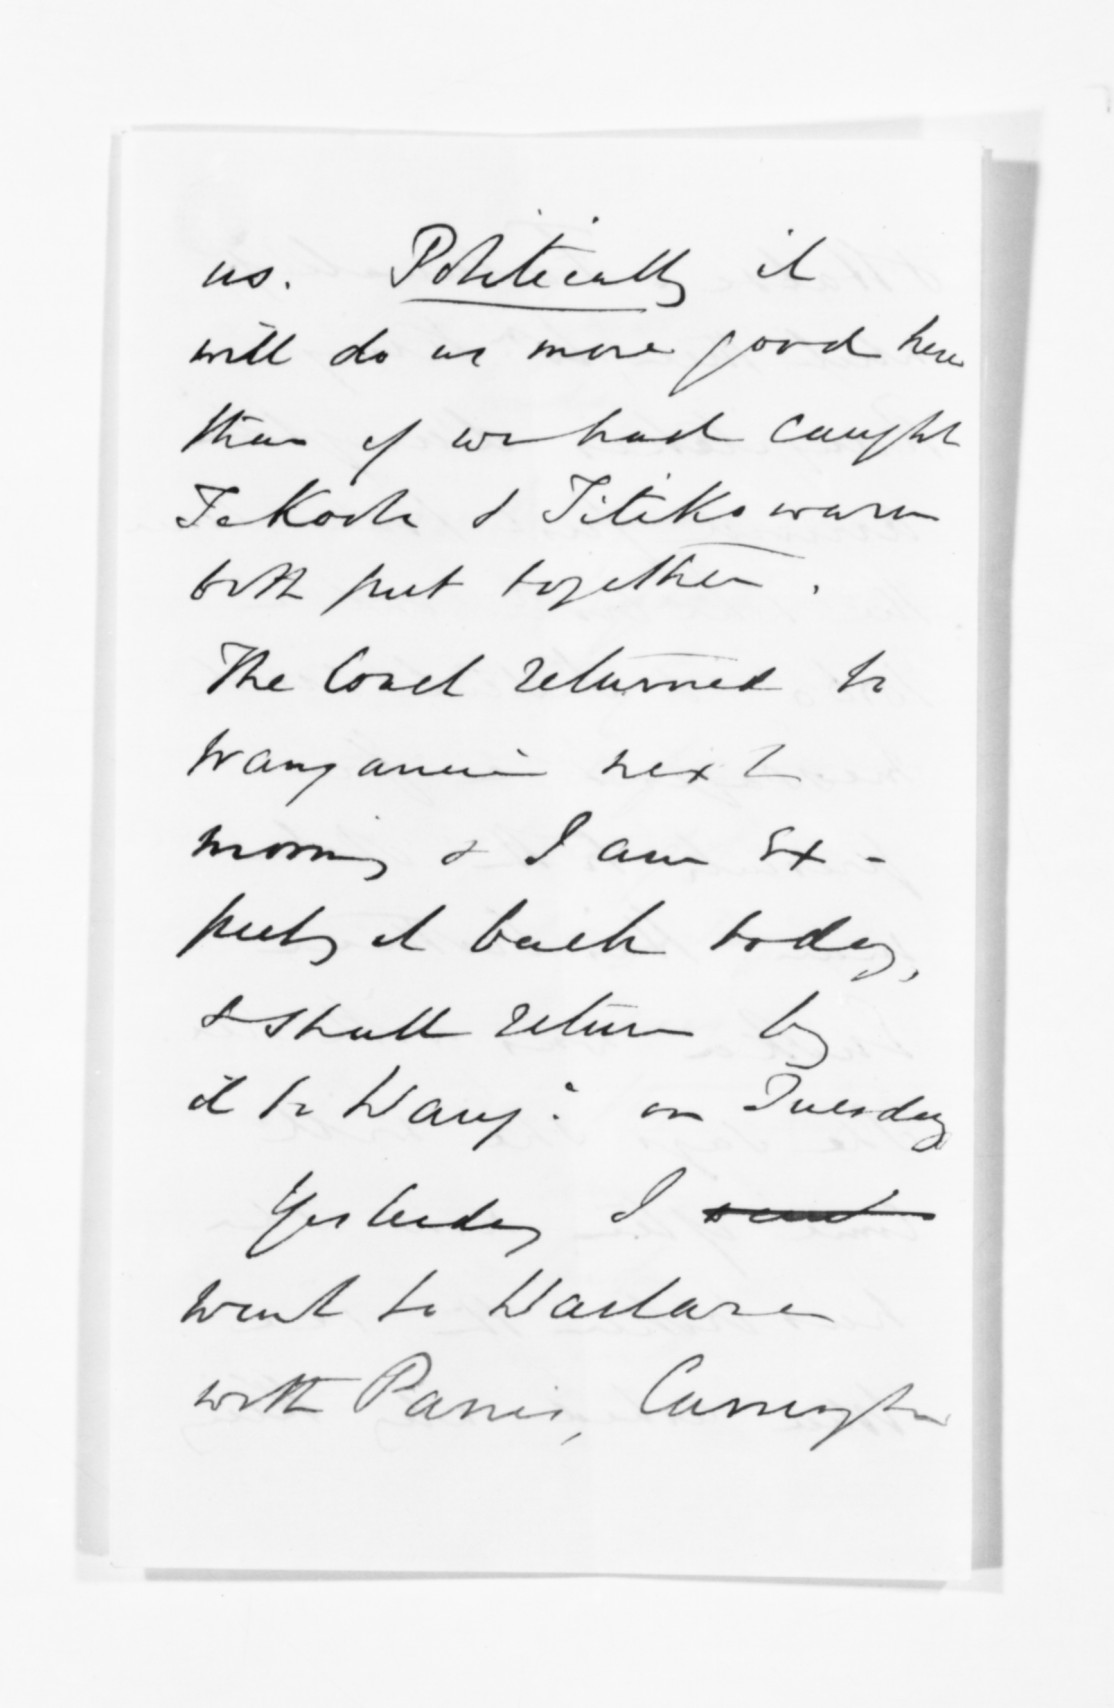 us. Politically it
will do us more good here
than if we had caught
Te Kooti & Titikowaru
both put together.
The Coach returned to
Wanganui next
morning & I am ex-
pectg it back today,
& shall return by
it to Wang: on Tuesday
Yesterday I sent
went to Waitara
with Parris, Carrington